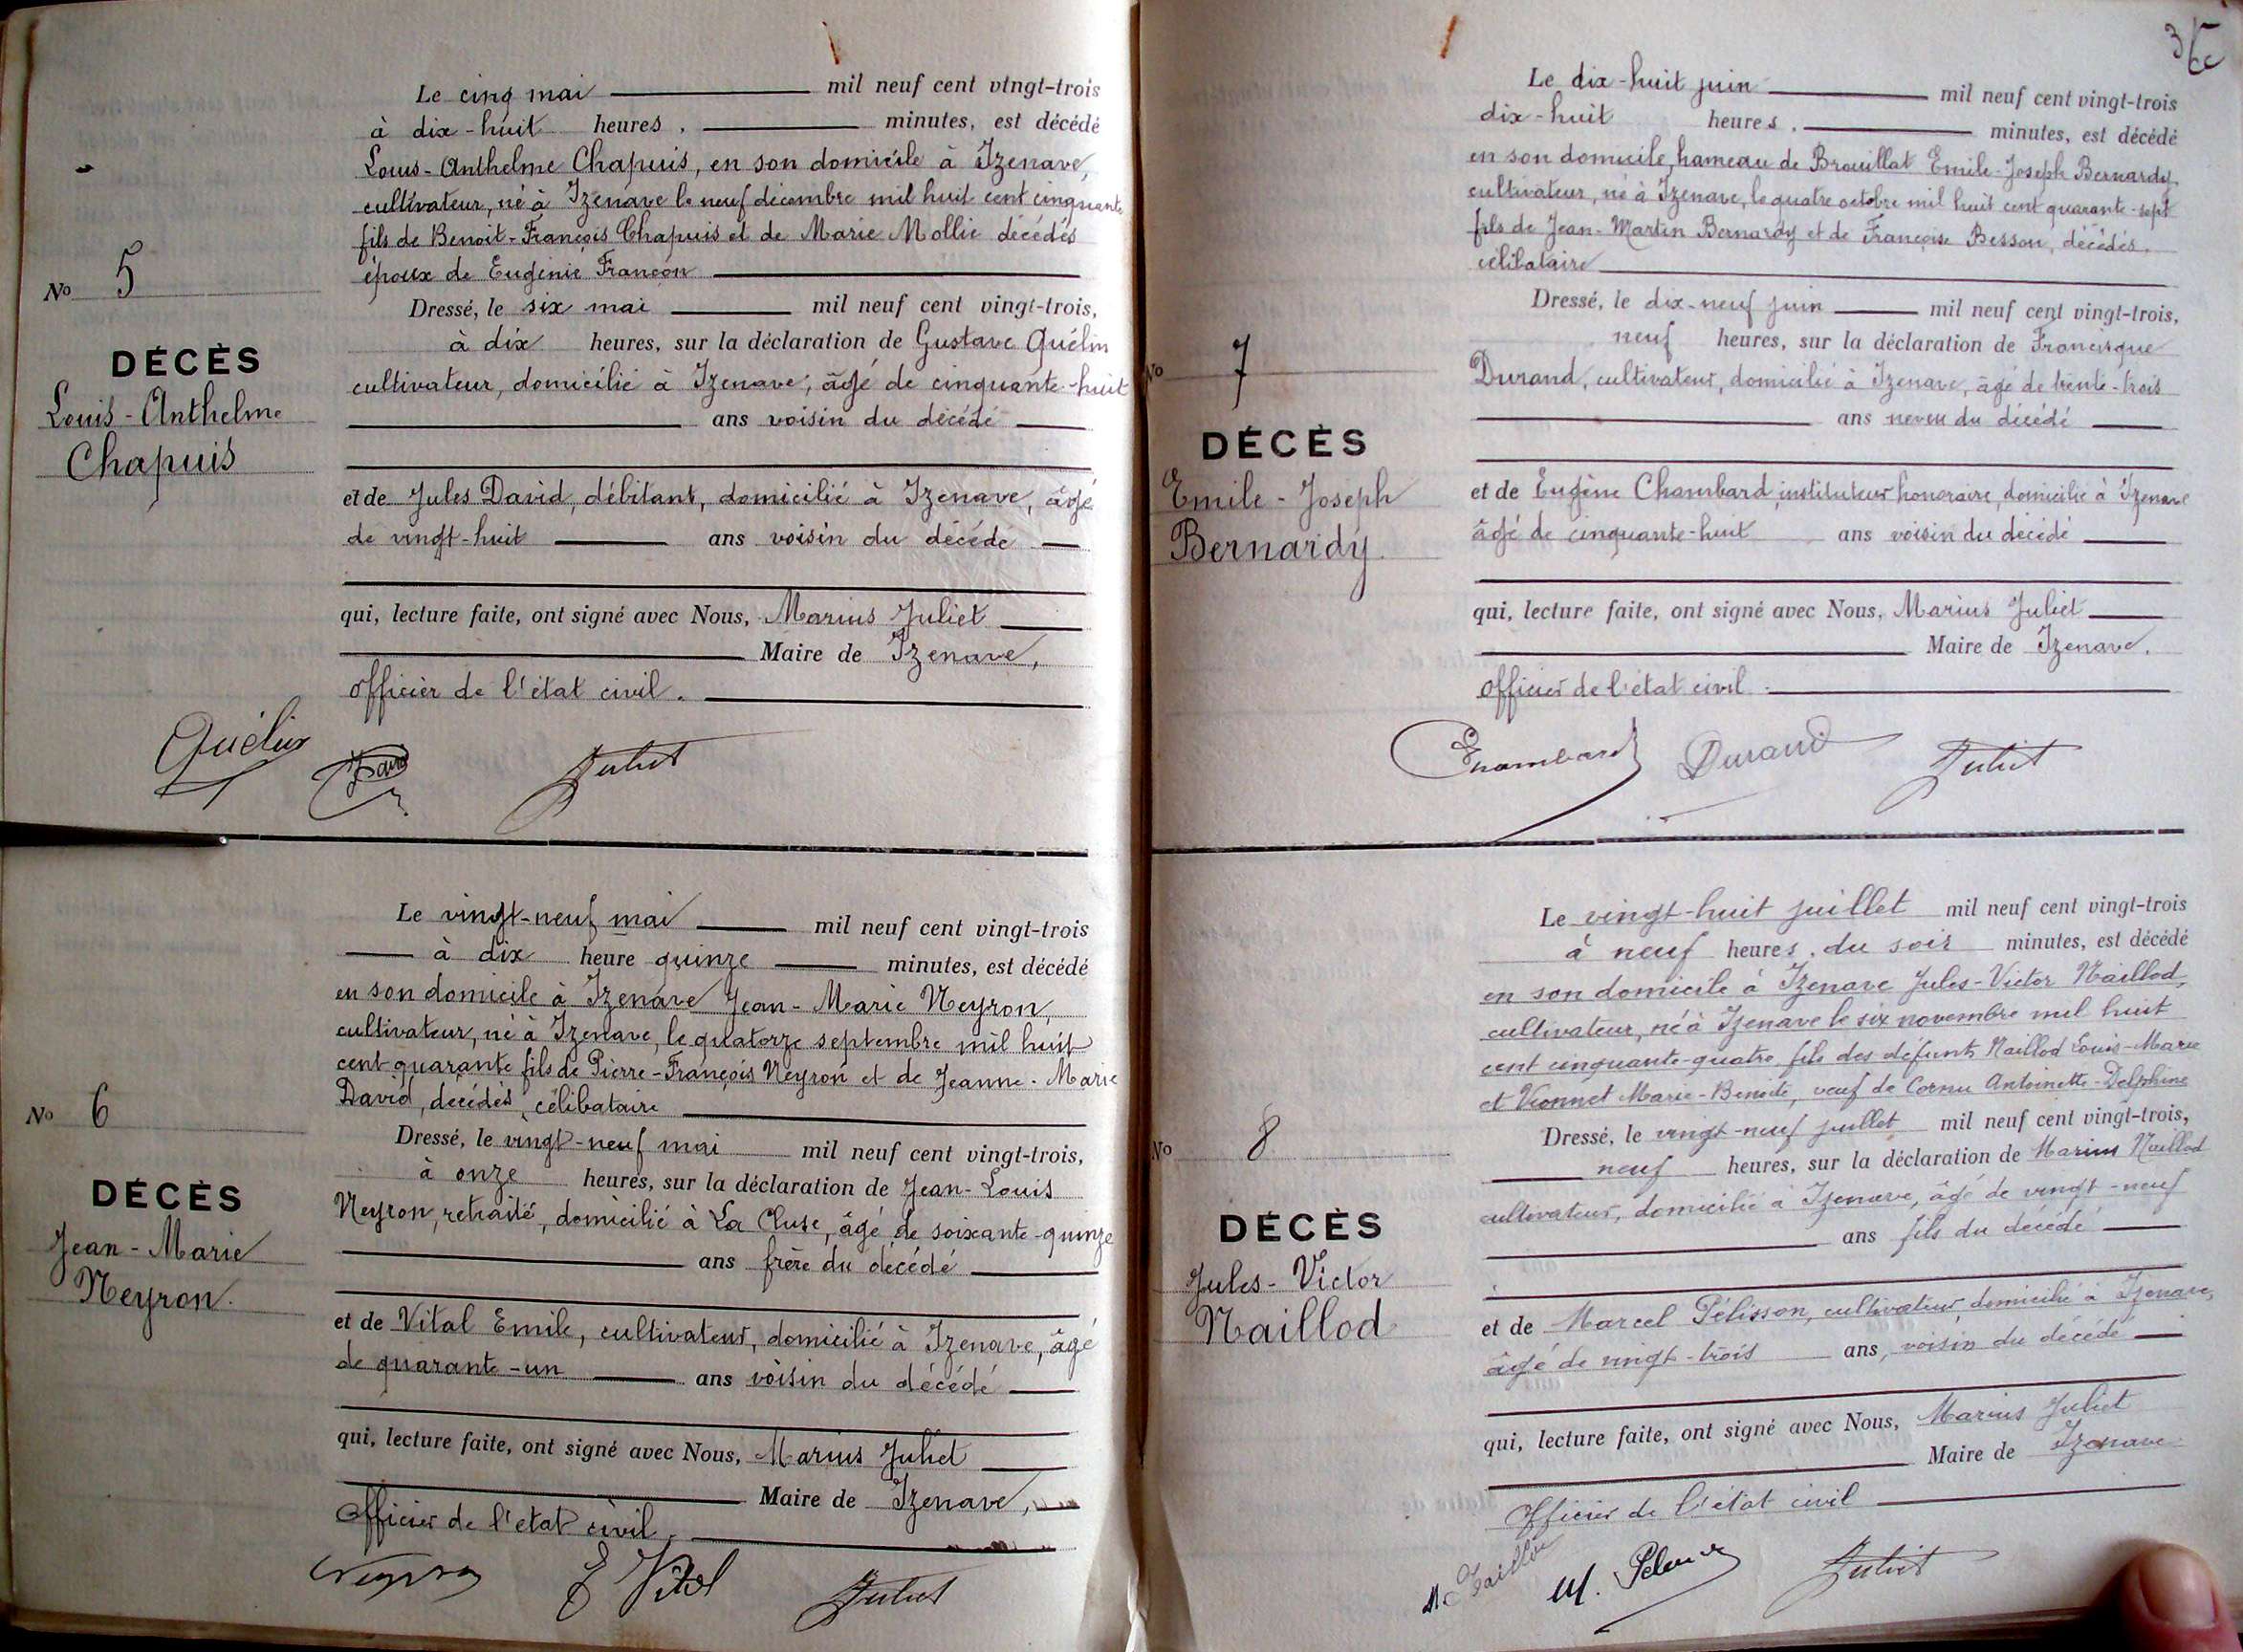 Le cinq mai mil neuf cent vingt-trois
à dix-huit heures, minutes, est décédé
Louis-Anthelme Chapuis, en son domicile à Izenave,
cultivateur, né à Izenave le neuf décembre mil huit cent cinquante
fils de Benoit-François Chapuis et de Marie Mollie décédés
époux de Eugénie Françon
No 5
Dressé, le six mai mil neuf cent vingt-trois,
à dix heures, sur la déclaration de Gustave Quélin
DÉCÈS
cultivateur, domicilié à Izenave, âgé de cinquante-huit
Louis-Anthelme
ans voisin du décédé
Chapuis
et de Jules David, débitant, domicilié à Izenave, âgé
de vingt-huit ans voisin du décédé
qui, lecture faite, ont signé avec Nous, Marius Juliet
Maire de Izenave,
officier de l'état civil.
Quélin David Juliet
Le vingt-neuf mai mil neuf cent vingt-trois
à dix heure quinze minutes, est décédé
en son domicile à Izenave Jean-Marie Neyron,
cultivateur, né à Izenave, le quatorze septembre mil huit
cent quarante fils de Pierre-François Neyron et de Jeanne-Marie
David, décédés, célibataire
No 6
Dressé, le vingt-neuf mai mil neuf cent vingt-trois,
à onze heures, sur la déclaration de Jean-Louis
DÉCÈS
Neyron, retraité, domicilié à La Cluse, âgé de soixante-quinze
Jean-Marie
ans frère du décédé
Neyron.
et de Vital Emile, cultivateur, domicilié à Izenave, âgé
de quarante-un ans voisin du décédé
qui, lecture faite, ont signé avec Nous, Marius Juliet
Maire de Izenave,
officier de l'état civil.
Neyron E Vital Juliet
Le dix-huit juin mil neuf cent vingt-trois
dix-huit heures, minutes, est décédé
en son domicile, hameau de Brouillat Emile-Joseph Bernardy
cultivateur, né à Izenave, le quatre octobre mil huit cent quarante-sept
fils de Jean-Martin Bernardy et de Françoise Besson, décédés.
célibataire
Dressé, le dix-neuf juin mil neuf cent vingt-trois,
neuf heures, sur la déclaration de Francisque
No 7
Durand, cultivateur, domicilié à Izenave, âgé de trente-trois
ans neveu du décédé
DÉCÈS
Emile-Joseph
Bernardy.
et de Eugène Chambard, instituteur honoraire, domicilié à Izenave
âgé de cinquante-huit ans voisin du décédé
qui, lecture faite, ont signé avec Nous, Marius Juliet
Maire de Izenave.
officier de l'état civil.
Chambard Durand Juliet
Le vingt-huit juillet mil neuf cent vingt-trois
à neuf heures, du soir minutes, est décédé
en son domicile à Izenave Jules-Victor Naillod,
cultivateur, né à Izenave le six novembre mil huit
cent cinquante-quatre, fils des défunts Naillod Louis-Marie
et Vionnet Marie-Benoite, veuf de Cornu Antoinette-Delphine
No 8
Dressé, le vingt-neuf juillet mil neuf cent vingt-trois,
neuf heures, sur la déclaration de Marius Naillod
DÉCÈS
cultivateur, domicilié à Izenave, âgé de vingt-neuf
ans fils du décédé
Jules-Victor
Naillod
et de Marcel Pélisson, cultivateur domicilié à Izenave,
âgé de vingt-trois ans, voisin du décédé
qui, lecture faite, ont signé avec Nous, Marius Juliet
Maire de Izenave
Officier de l'état civil
Juliet